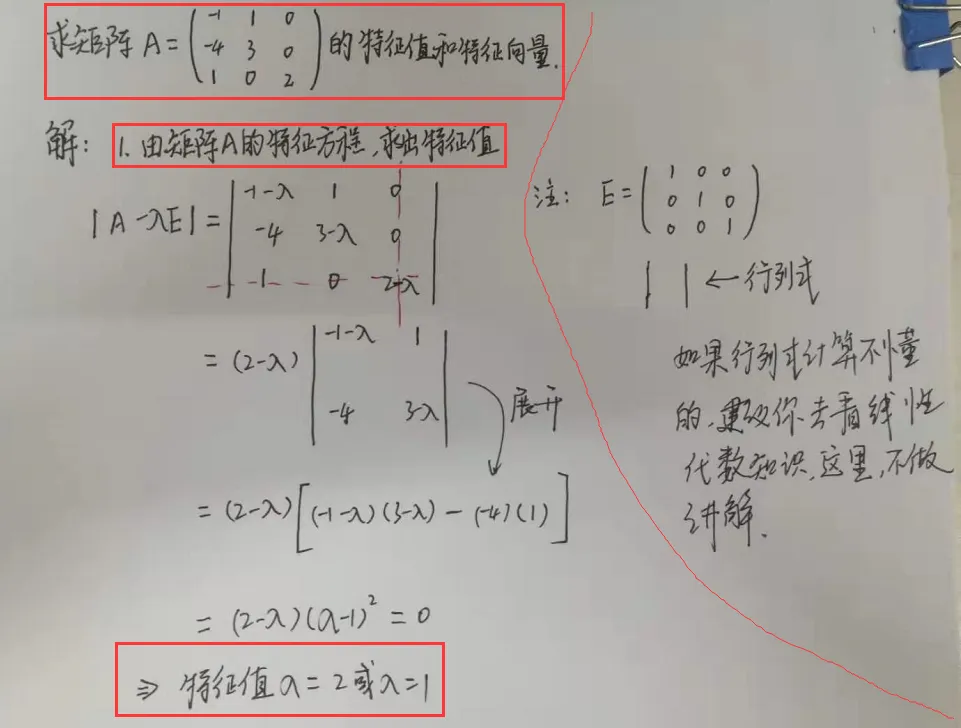 求矩阵 A = ( -1 1 0
-4 3 0
1 0 2 ) 的特征值和特征向量.
解: 1. 由矩阵A的特征方程,求出特征值
|A-λE| = | -1-λ 1 0
-4 3-λ 0
1 0 2-λ |
= (2-λ) | -1-λ 1
-4 3-λ |
展开
= (2-λ)[(-1-λ)(3-λ) - (-4)(1)]
= (2-λ)(λ-1)² = 0
⇒ 特征值λ=2或λ=1
注: E = ( 1 0 0
0 1 0
0 0 1 )
| | ← 行列式
如果行列式计算不懂
的,建议你去看线性
代数知识,这里,不做
讲解.